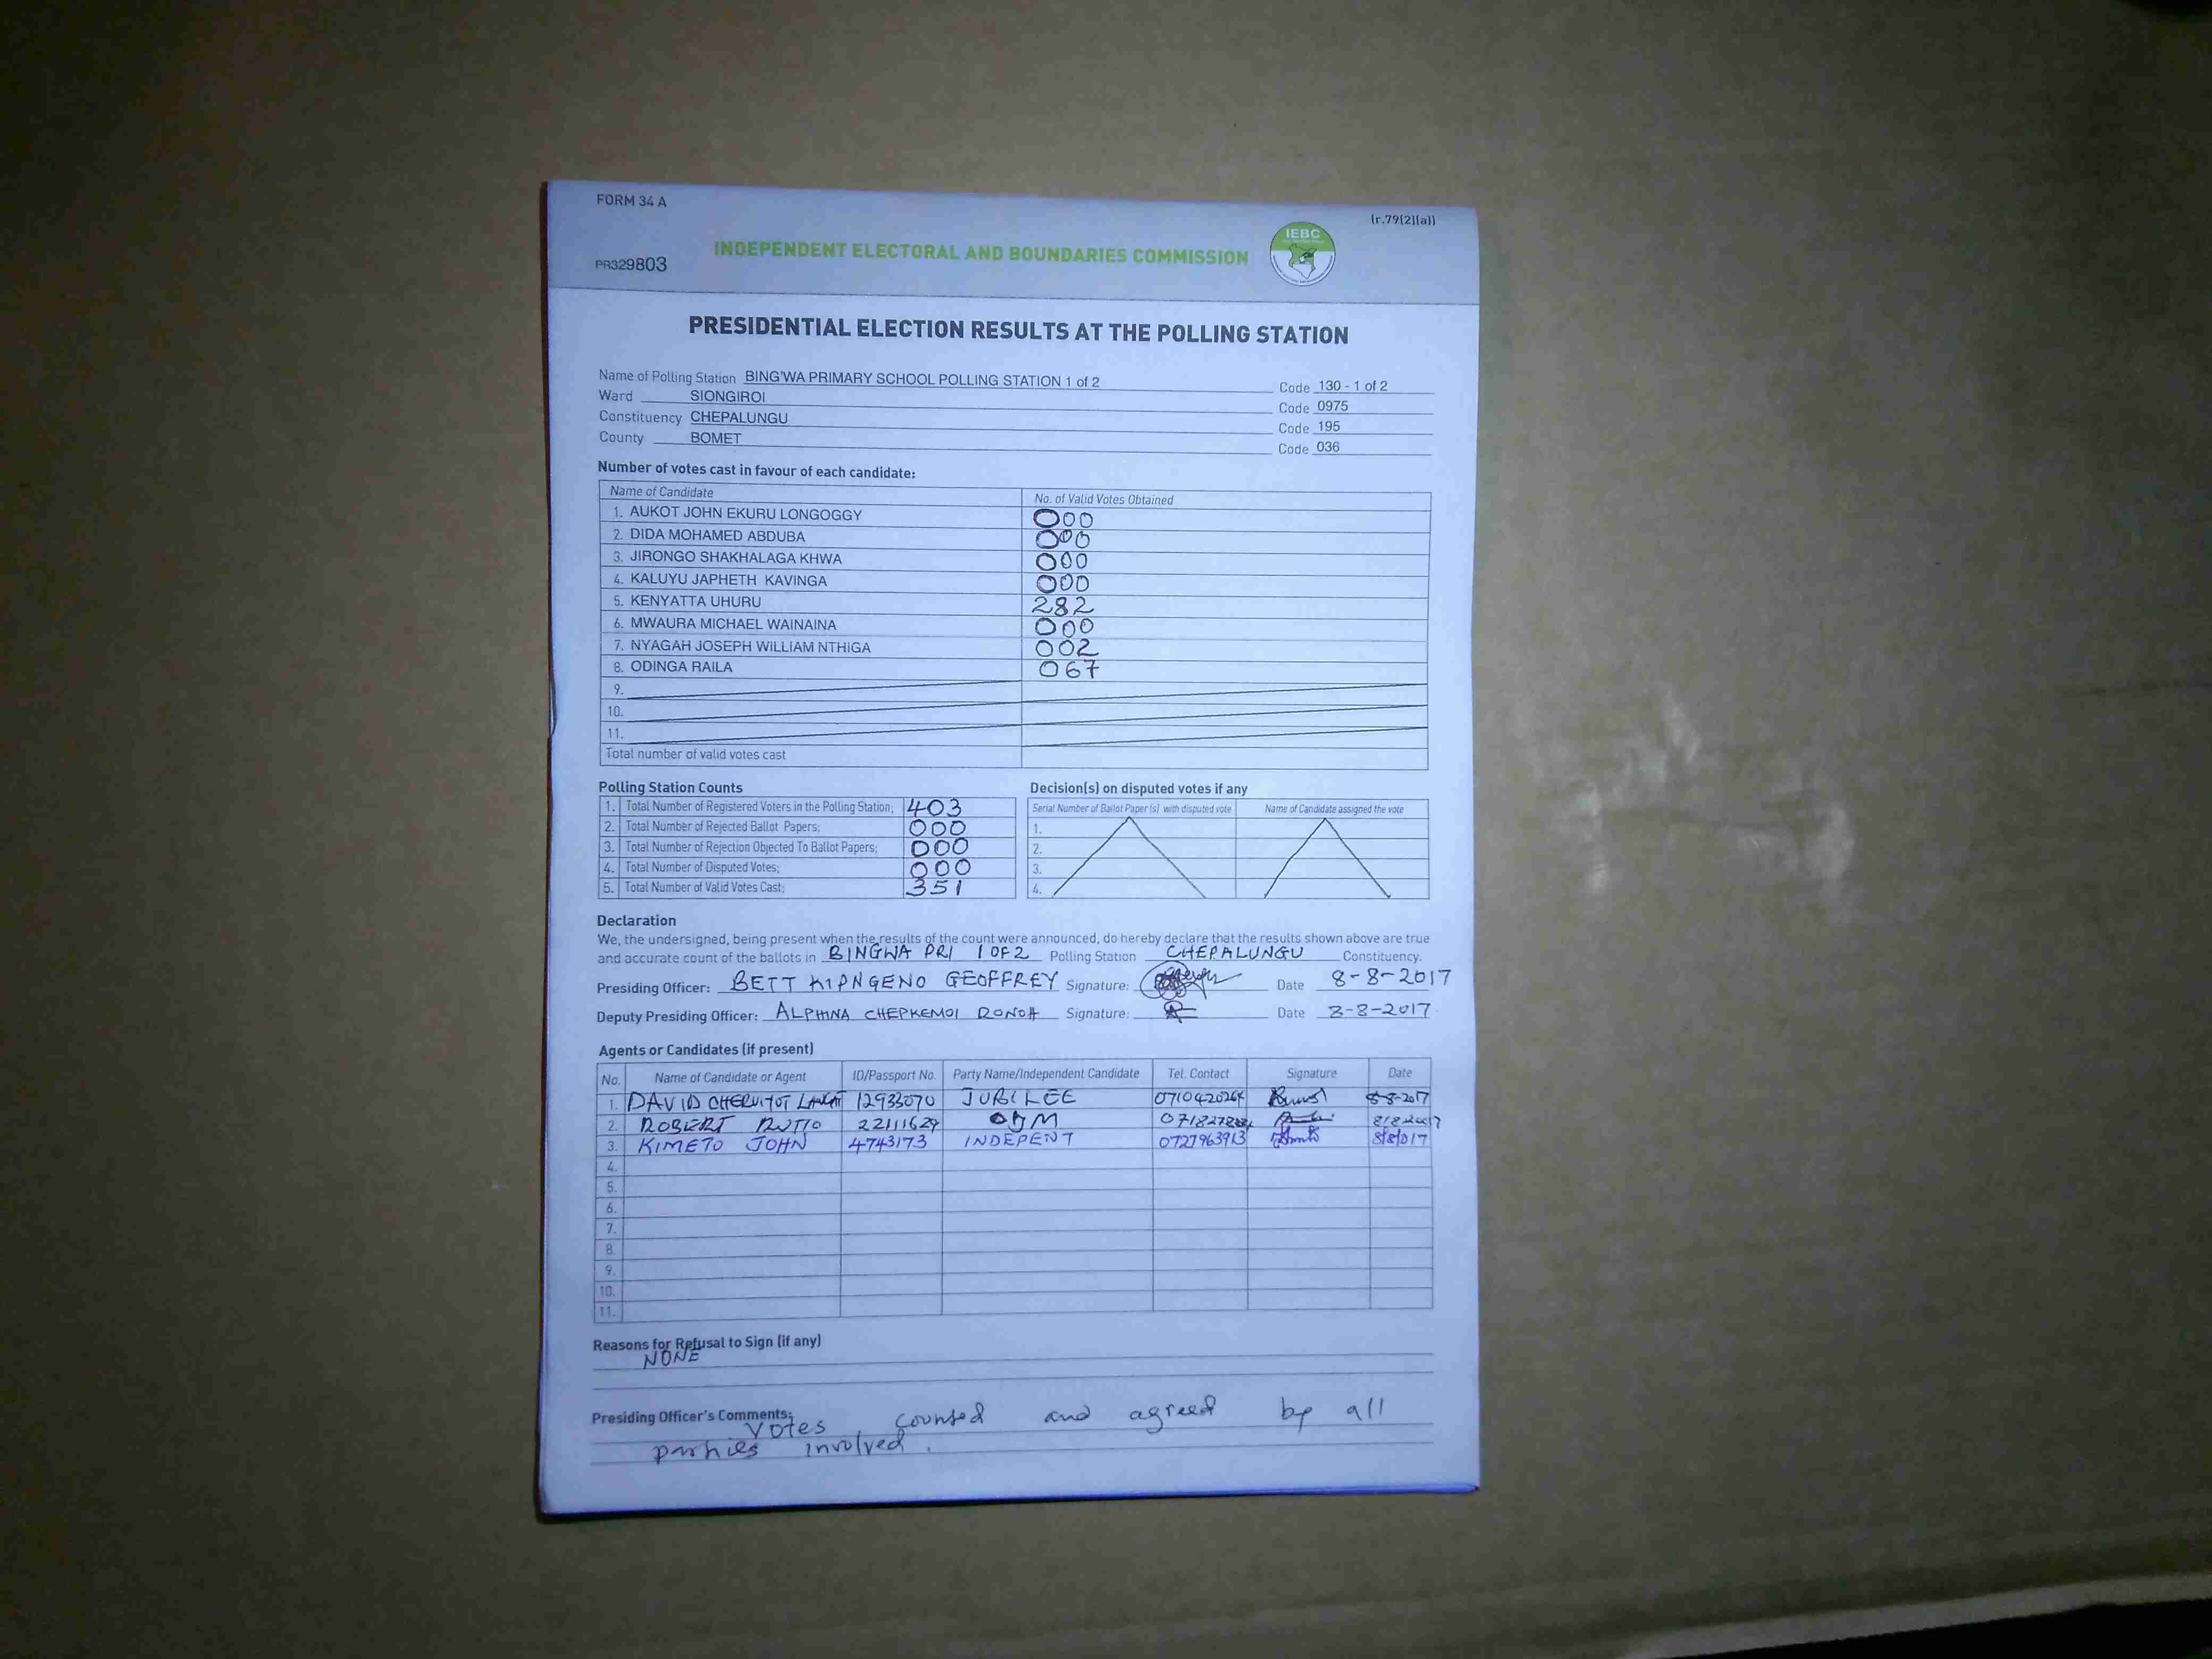 FORM 34 A
(r.79(2)(a))
IEBC
INDEPENDENT ELECTORAL AND BOUNDARIES COMMISSION
PR329803
PRESIDENTIAL ELECTION RESULTS AT THE POLLING STATION
Name of Polling Station BING'WA PRIMARY SCHOOL POLLING STATION 1 of 2 Code 130 - 1 of 2
Ward SIONGIROI Code 0975
Constituency CHEPALUNGU Code 195
County BOMET Code 036
Number of votes cast in favour of each candidate:
Name of Candidate No. of Valid Votes Obtained
1. AUKOT JOHN EKURU LONGOGGY 000
2. DIDA MOHAMED ABDUBA 000
3. JIRONGO SHAKHALAGA KHWA 000
4. KALUYU JAPHETH KAVINGA 000
5. KENYATTA UHURU 282
6. MWAURA MICHAEL WAINAINA 000
7. NYAGAH JOSEPH WILLIAM NTHIGA 002
8. ODINGA RAILA 067
9.
10.
11.
Total number of valid votes cast
Polling Station Counts
1. Total Number of Registered Voters in the Polling Station; 403
2. Total Number of Rejected Ballot Papers; 000
3. Total Number of Rejection Objected To Ballot Papers; 000
4. Total Number of Disputed Votes; 000
5. Total Number of Valid Votes Cast; 351
Decision(s) on disputed votes if any
Serial Number of Ballot Paper (s) with disputed vote Name of Candidate assigned the vote
1.
2.
3.
4.
Declaration
We, the undersigned, being present when the results of the count were announced, do hereby declare that the results shown above are true
and accurate count of the ballots in BINGWA PRI 1 OF 2 Polling Station CHEPALUNGU Constituency.
Presiding Officer: BETT KIPNGENO GEOFFREY Signature: Date 8-8-2017
Deputy Presiding Officer: ALPHINA CHEPKEMOI RONOH Signature: Date 8-8-2017
Agents or Candidates (if present)
No. Name of Candidate or Agent ID/Passport No. Party Name/Independent Candidate Tel. Contact Signature Date
1. DAVID CHERUIYOT 12933070 JUBILEE 0710420264 8-8-2017
2. ROBERT RUTTO 22111629 ODM
3. KIMETO JOHN 4743173 INDEPENT 0727963913 8/8/017
4.
5.
6.
7.
8.
9.
10.
11.
Reasons for Refusal to Sign (if any)
NONE
Presiding Officer's Comments:
Votes counted and agreed by all
parties involved.